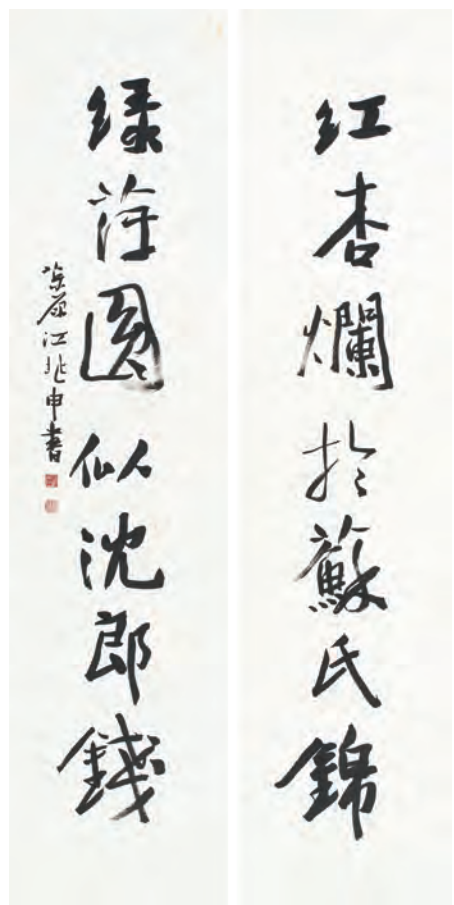 紅杏爛於蘇氏錦
緑萍圓似沈郎錢
茮原江兆申書